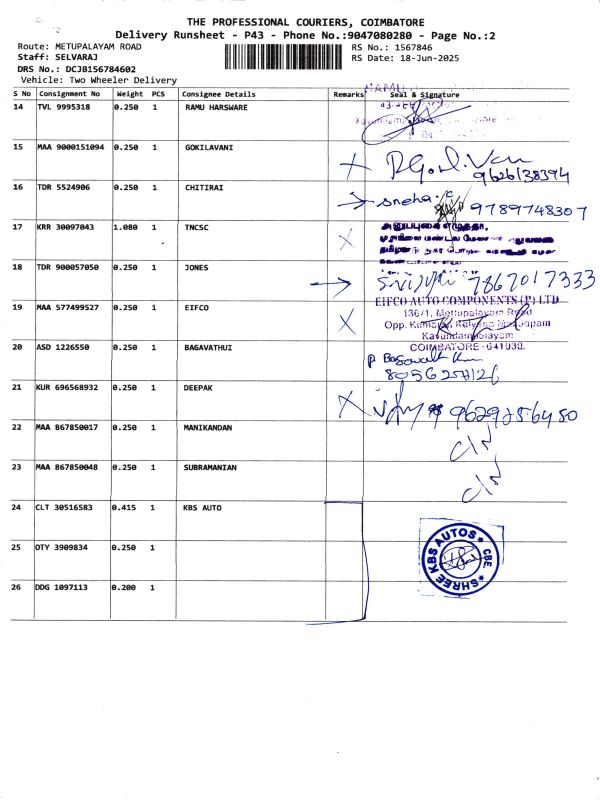 THE PROFESSIONAL COURIERS, COIMBATORE
Delivery Runsheet - P43 - Phone No.:9047080280 - Page No.:2
Route: METUPALAYAM ROAD
RS No.: 1567846
Staff: SELVARAJ
RS Date: 18-Jun-2025
DRS No.: DCJB156784602
Vehicle: Two Wheeler Delivery
S No Consignment No Weight PCS Consignee Details Remarks Seal & Signature
14 TVL 9995318 0.250 1 RAMU HARSWARE
15 MAA 9000151094 0.250 1 GOKILAVANI
9626138394
16 TDR 5524906 0.250 1 CHITIRAI
sneha 9789748307
17 KRR 30097043 1.080 1 TNCSC
18 TDR 900057050 0.250 1 JONES
7867017333
19 MAA 577499527 0.250 1 EIFCO
EIFCO AUTO COMPONENTS (P) LTD
136/1, Mettupalayam Road
Opp. Kumaran Kalyana Mandapam
Kavundampalayam
COIMBATORE-641030.
20 ASD 1226550 0.250 1 BAGAVATHUI
21 KUR 696568932 0.250 1 DEEPAK
22 MAA 867850017 0.250 1 MANIKANDAN
23 MAA 867850048 0.250 1 SUBRAMANIAN
24 CLT 30516583 0.415 1 KBS AUTO
SHREE KBS AUTOS
CBE.
25 OTY 3909834 0.250 1
26 DDG 1097113 0.200 1